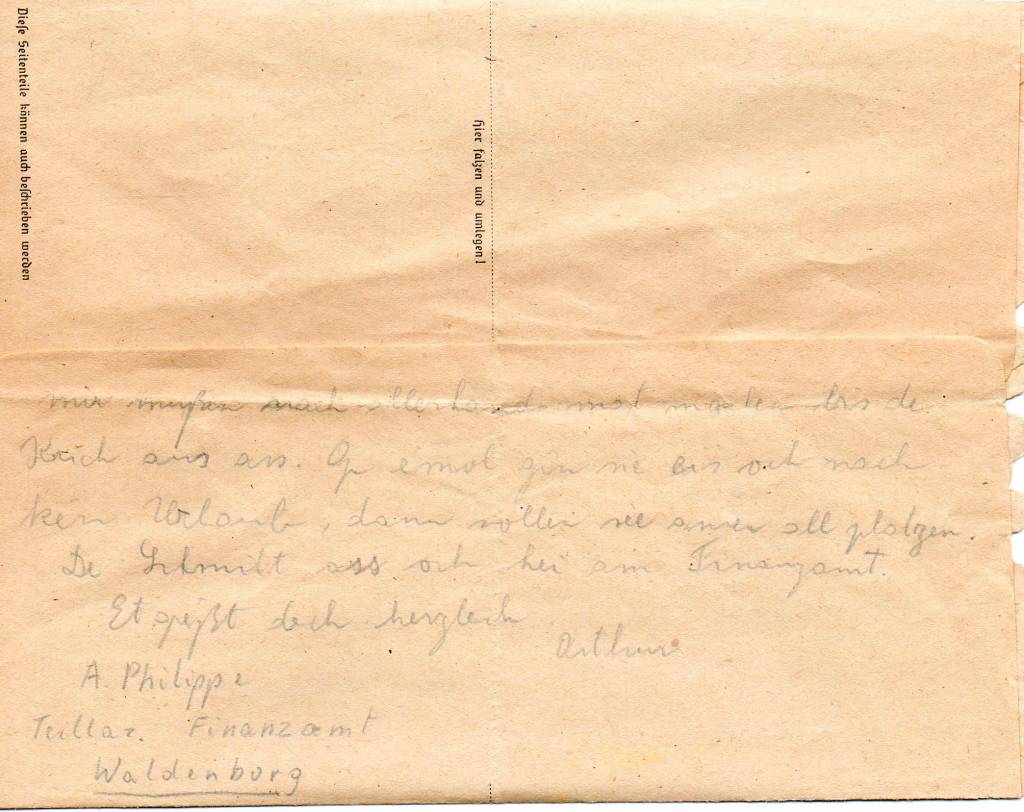 Diese Seitenteile können auch beschrieben werden
Hier falzen und umlegen!
mir mußen nach allerhand mat maachen bis de
Krich aus ass. emol gin se eis och nach
ken Urlaub, dann sollen se awer all platzen.
De Schmitt ass och hei am Finanzamt.
Et grüßt dech herzlech
Arthur
A. Philippe
Teillaz. Finanzamt
Waldenborg